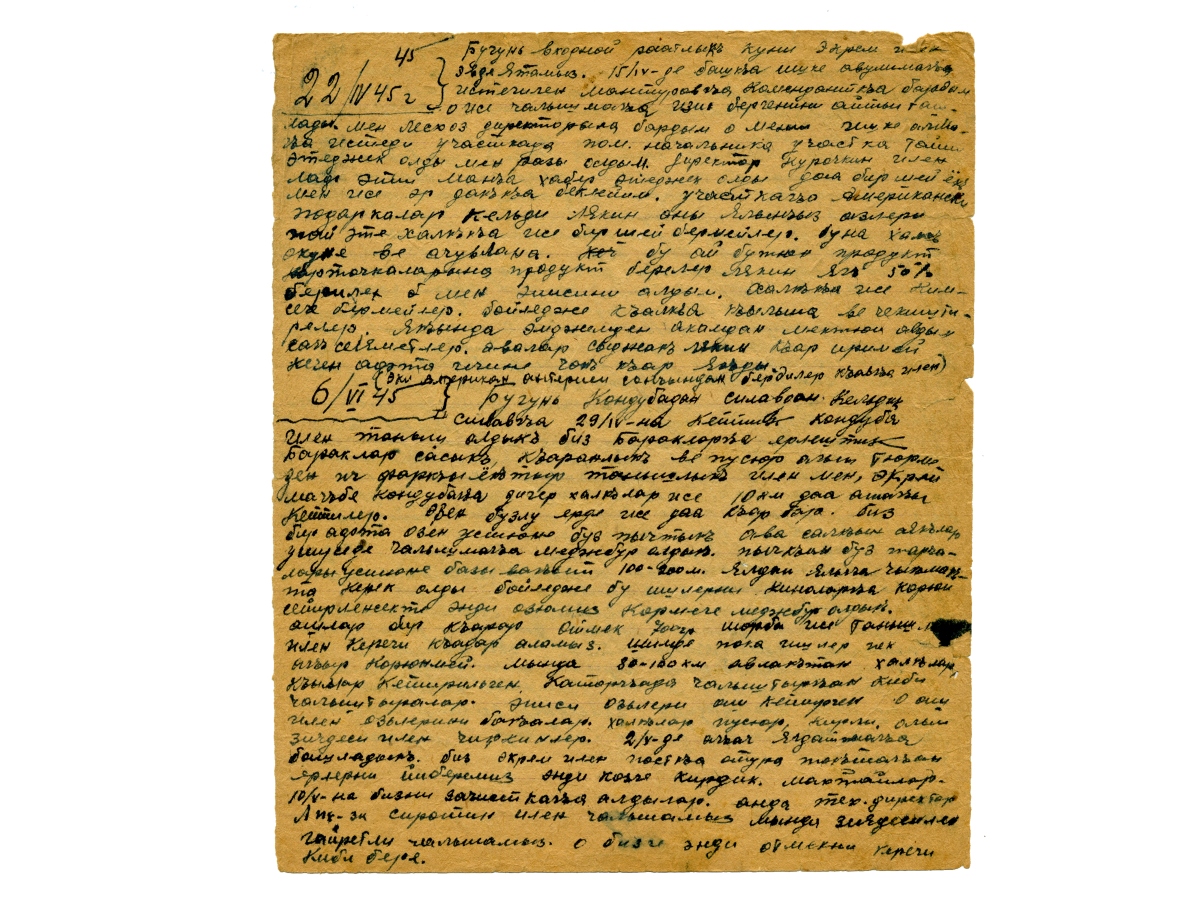 45
22/IV 45 г
Бугунь входной раатлыкъ куни Экрем илен
эвде ятамыз. 15/IV-де башкъа ишке авушмагъа
истегилен Мантуровгъа комендантка бардым
о исе чалышмагъа изин бергенини айтып таш-
лады. Мен лесхоз директорына бардым о мени ишке алма-
гъа истеди участкада пом. начальника участка тайин
этеджек олды мен разы олдым. Директор Курочкин илен
лаф этип манъа хабер этеджек олды даа бир шей ёкъ
мен исе эр дакъкъа беклейим. Участкагъа американски
подаркалар кельди лякин оны ялынъыз озлери
пай эте халкъкъа исе бир шей бермейлер. Буна халкъ
окуне ве ачувлана. бу ай бутюн продукт
карточкаларына продукт берелер лякин ягъ 50%
берилен мен эписини алдым. Халкъкъа исе ким-
сеге бермейлер. Бойледже къавгъа къылына ве чекишти-
релер. Якъында эмджемден акамдан мектюп алдым
сагъ селяметлер. Эвалар сыджакъ лякин къар иримей
кечен афта ичине чокъ къар ягъды
(Эки американ консерви сонъундан бердилер къавгъа илен)
6/VI 45
Бугунь Кондубадан силавдан кельдик
силавгъа 29/IV-на кеттик Кондуба
илен таныш олдыкъ биз баракларгъа ерлештик
Бараклар сасыкъ, къаранлыкъ ве пусюр апыс тюрме-
ден ич фаркъы ёкътыр танышлыкъ илен мен, Экрем
Кондубагъа дигер халкълар исе 10 км даа ашагъы
кеттилер. Озен бузлу ерде исе даа къар бар. Биз
бир афта озен устюне буз пычтыкъ ава салкъын аякълар
ушуседе чалышмагъа меджбур олдыкъ. Пычкъан буз парча-
лары устюне базы вакъыт 100-200 м. ялдап ялыгъа чыкъмакъ-
та керек олды бойледже бу шилерни киноларгъа корюп
сейирленсекте энди озюмиз кормеге меджбур олдыкъ.
Ашлар бир къарар отмек 700 гр шорба исе таныш
илен кереги къадар аламыз. Шимди пока ишлер пек
агъыр корюнмей. Мында 80-100 км авлакътан халкълар
къывыр кетирильген. Каторгъада чалыштыргъан киби
чалыштыралар. Эписи озьлери аш кетирген о аш
илен озьлерини бакъалар. Халкълар пусюр, кирли, олып
зиядеси илен чиркинлер. 2/V-де агъач ягъдатмагъа
башладыкъ. Биз Экрем илен постка отура токъташкъан
ерлерни йиберемиз энди козге кирдик. Макътайлар.
10/V-на бизни зачисткагъа алдылар. Анда тех. директор
ЛПХ-за Сиротин илен чалышамыз мында зиядесилен
гайретли чалышамыз. О бизге энди отмекни кереги
киби бере.